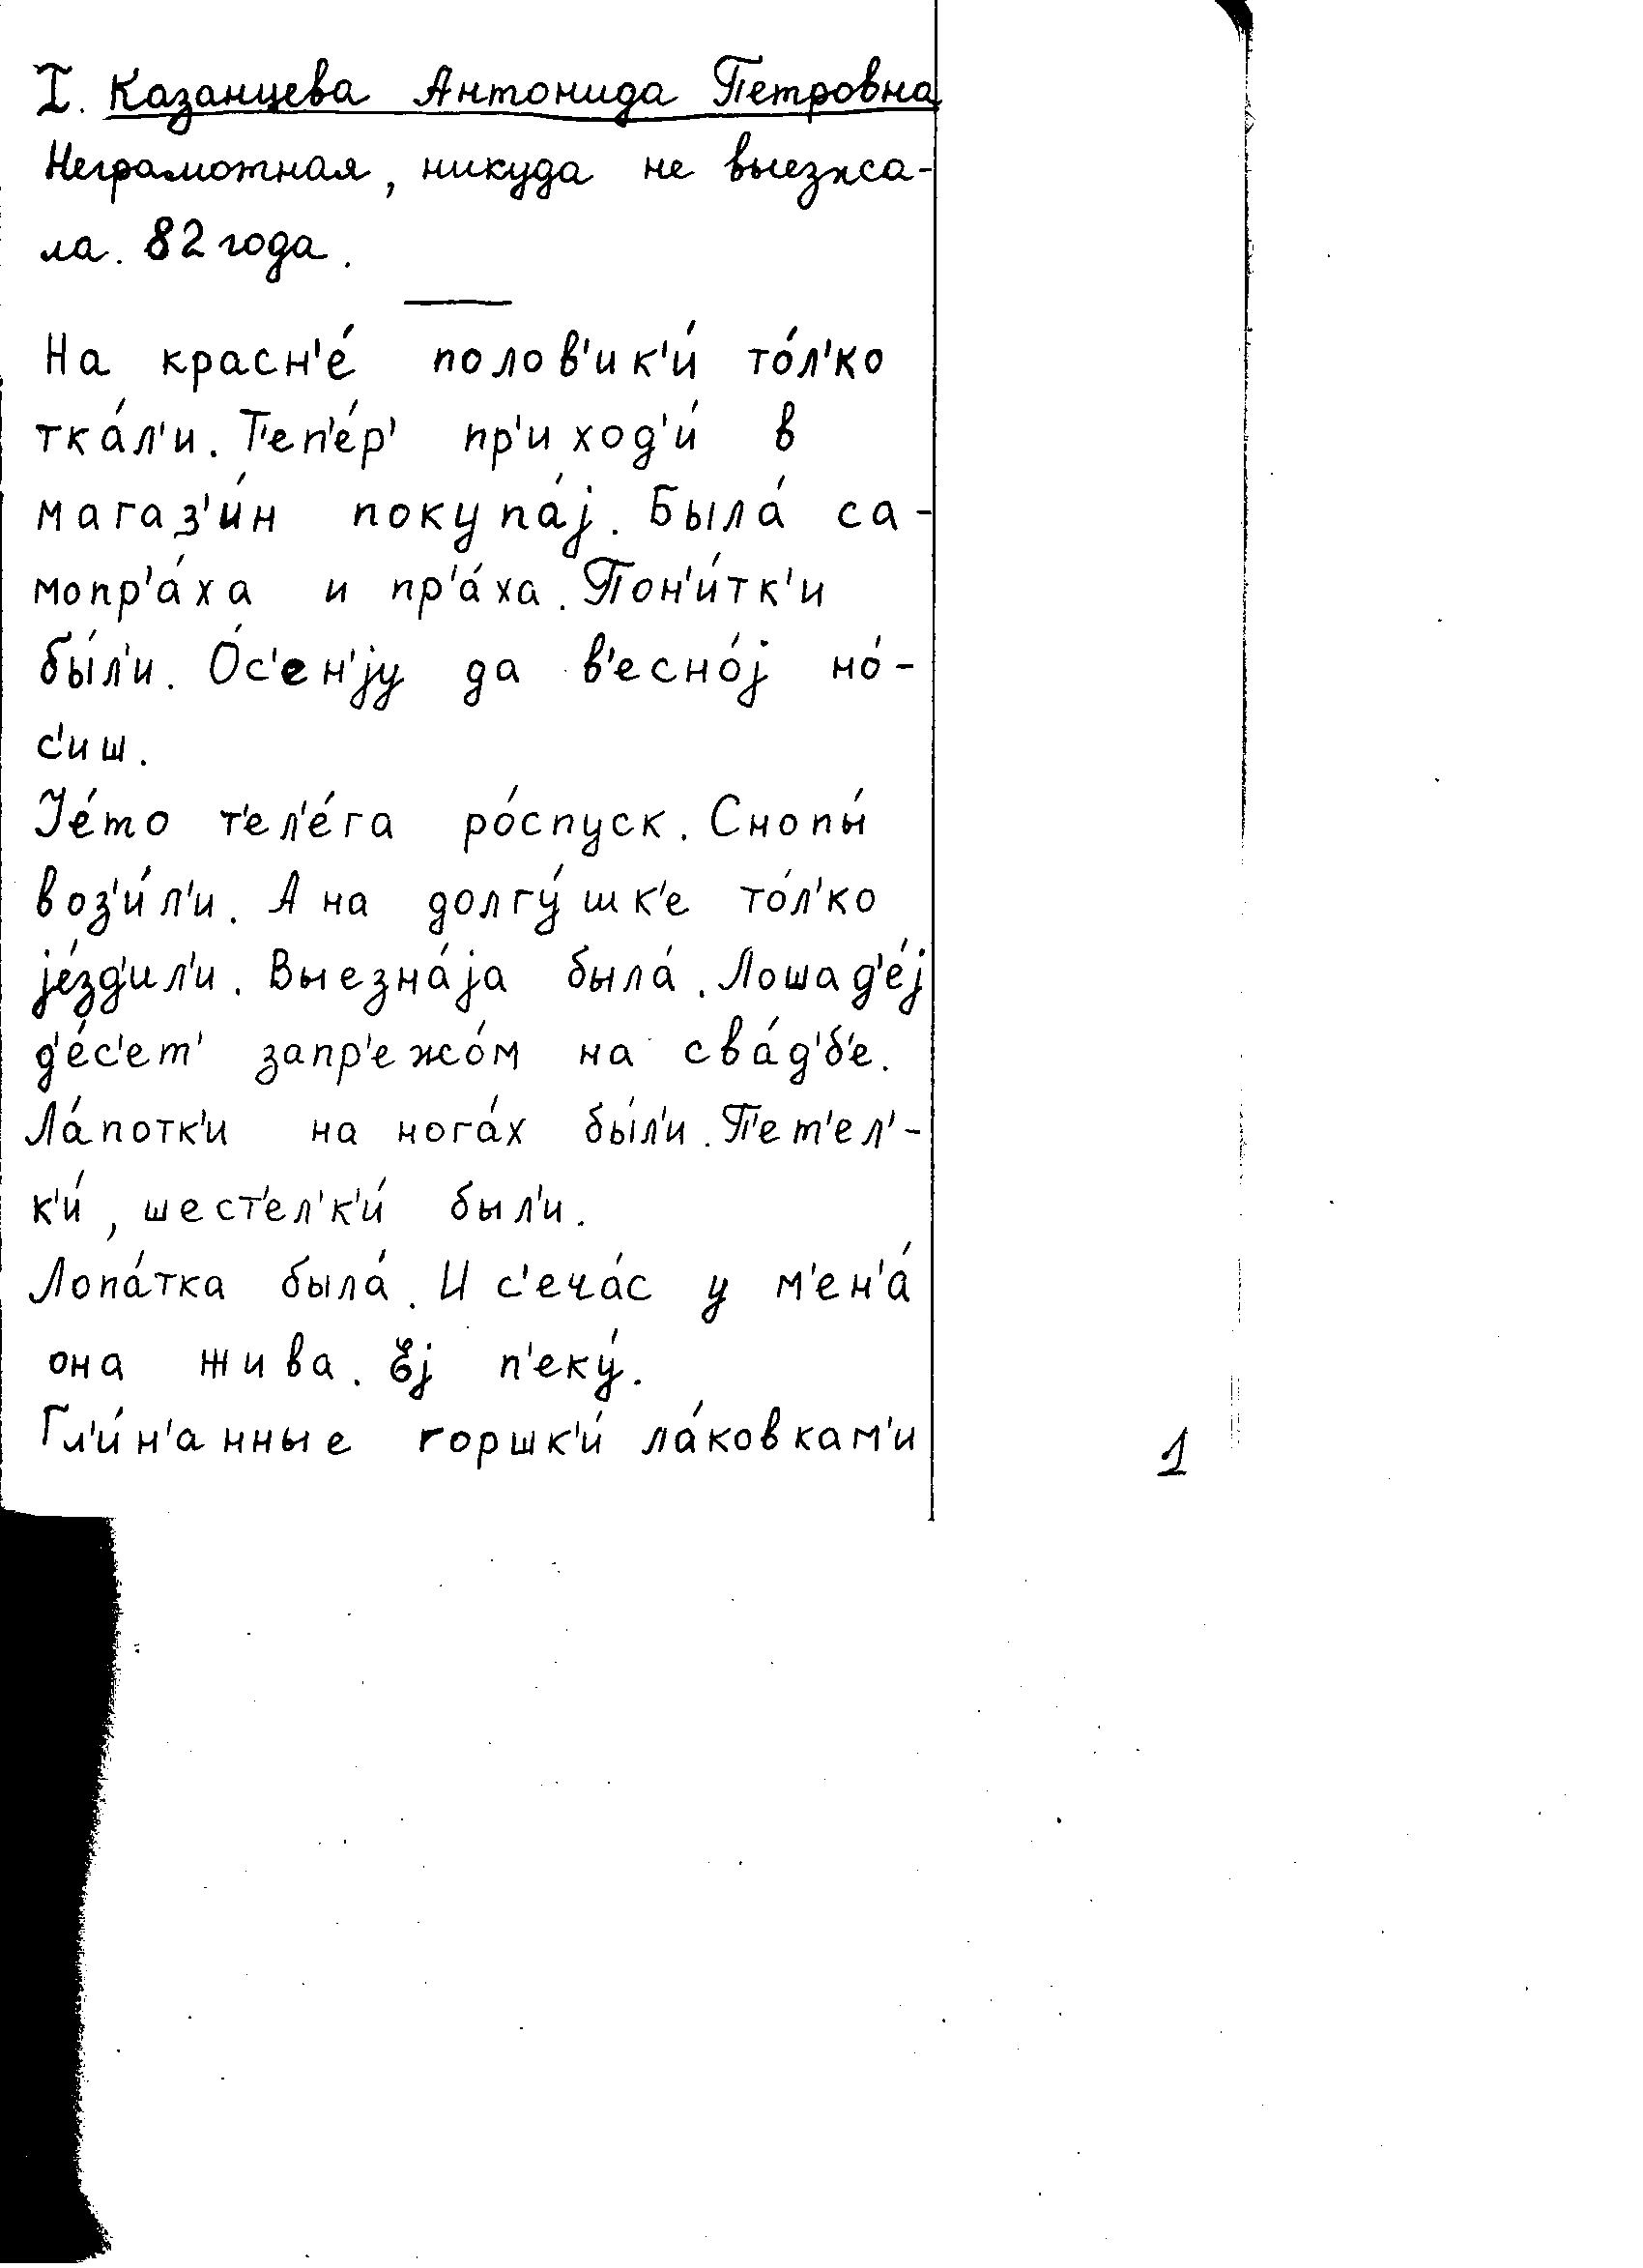 I. Казанцева Антонида Петровна
Неграмотная, никуда не выезжа-
ла. 82 года.
На красн'е́ полов'ик'и́ то́л'ко
тка́л'и. Т'еп'е́р' пр'иход'и́ в
магаз'и́н покупа́ј. Была́ са-
мопр'а́ха и пр'а́ха. Пон'и́тк'и
бы́л'и. О́с'ен'ју да в'есно́ј но́-
с'иш.
Је́то т'ел'е́га ро́спуск. Снопы́
воз'и́л'и. А на долгу́шк'е то́л'ко
је́зд'ил'и. Выезна́ја была́. Лошад'е́ј
д'е́с'ет' запр'ежо́м на сва́д'б'е.
Ла́потк'и на нога́х бы́л'и. П'ет'ел'-
к'и́, шест'ел'к'и́ был'и.
Лопа́тка была́. И с'еча́с у м'ен'а́
она жива. Еј п'еку́.
Гл'и́н'анные горшк'и́ ла́ковкам'и
1